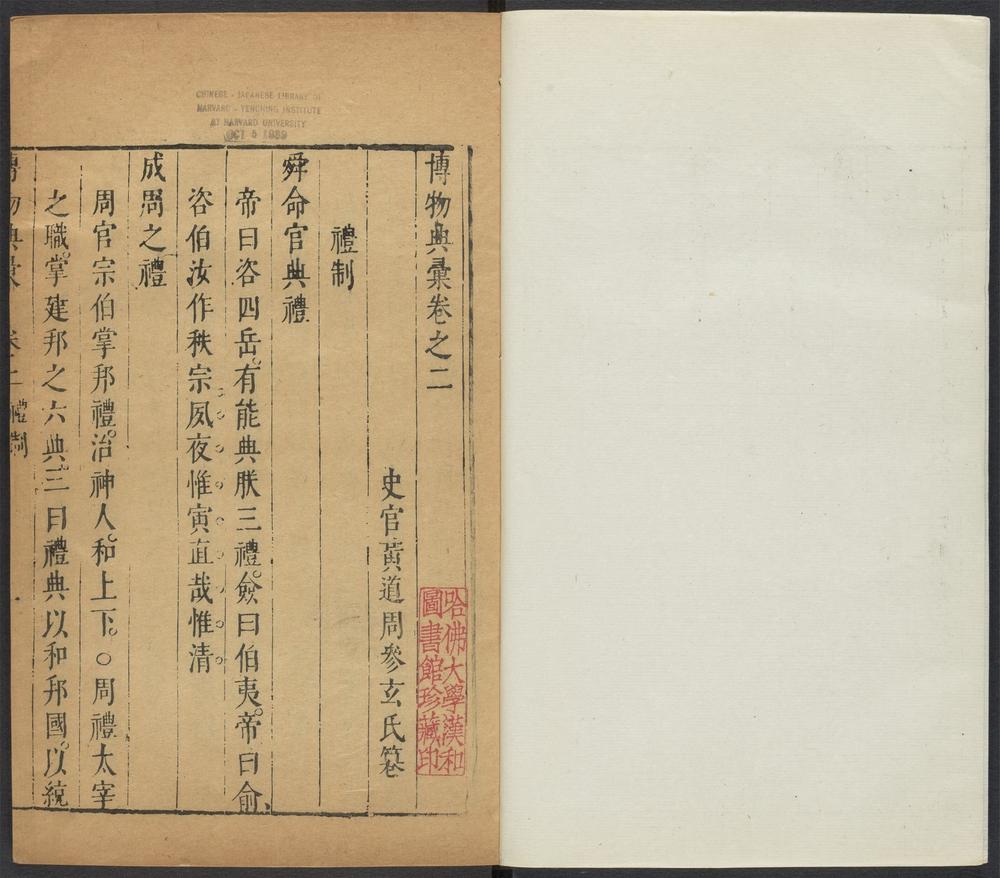 CHINESE - JAPANESE LIBRARY OF
HARVARD - YENCHING INSTITUTE
AT HARVARD UNIVERSITY
OCT 5 1939
博物典彙卷之二
史官黃道周參玄氏纂
禮制
舜命官典禮
帝曰咨四岳有能典朕三禮僉曰伯夷帝曰俞
咨伯汝作秩宗夙夜惟寅直哉惟清
成周之禮
周官宗伯掌邦禮治神人和上下○周禮太宰
之職掌建邦之六典三曰禮典以和邦國以統
博物典彙 卷二 禮制
哈佛大學漢和
圖書館珍藏印